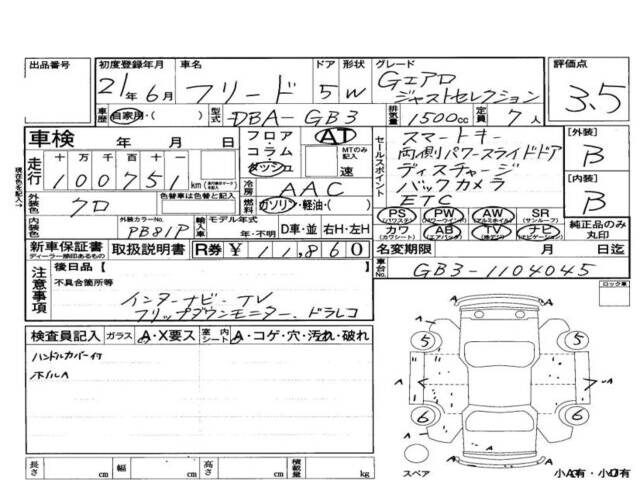 出品番号
初度登録年月 車名 ドア 形状 グレード 評価点
21年 6月 フリード 5 W Gエアロ
ジャストセレクション
3.5
車歴 自家用・( ) 型式 DBA-GB3 排気量 1500cc 定員 7人
車検 年 月 日
フロア・
コラム・
ダッシュ
AT
MTのみ記入
速
セールスポイント
スマートキー
両側パワースライドドア
ディスチャージ
バックカメラ
ETC
[外装]
B
[内装]
B
現在色を記入→
走行 十 万 千 百 十 一
100751 km
冷房 AAC
外装色 クロ 色替車は色替と記入
燃料 ガソリン・軽油・( )
PS (パワステ) PW (パワーウインド) AW (アルミホイル) SR (サンルーフ)
カワ (カワシート) AB (エアバック) TV ナビ (ナビゲーション)
純正品のみ
丸印
内装色 外装カラーNo. PB81P 輸入車 モデル年式 年・不明 D車・並 右H・左H
新車保証書 取扱説明書 R券 ¥ 11,860
ディーラー捺印あるもの
名変期限 月 日迄
車台No. GB3-1104045
注意事項
後日品【 】
不具合箇所等
インターナビ・TV
フリップダウンモニター、ドラレコ
ロック車
検査員記入 ガラス A・X要ス 室内シート A・コゲ・穴・汚れ・破れ
ハンドルカバー付
A
A
5 5
A A
6 6
A
A
スペア
小A有・小U有
長さ cm 幅 cm 高さ cm 積載量 kg